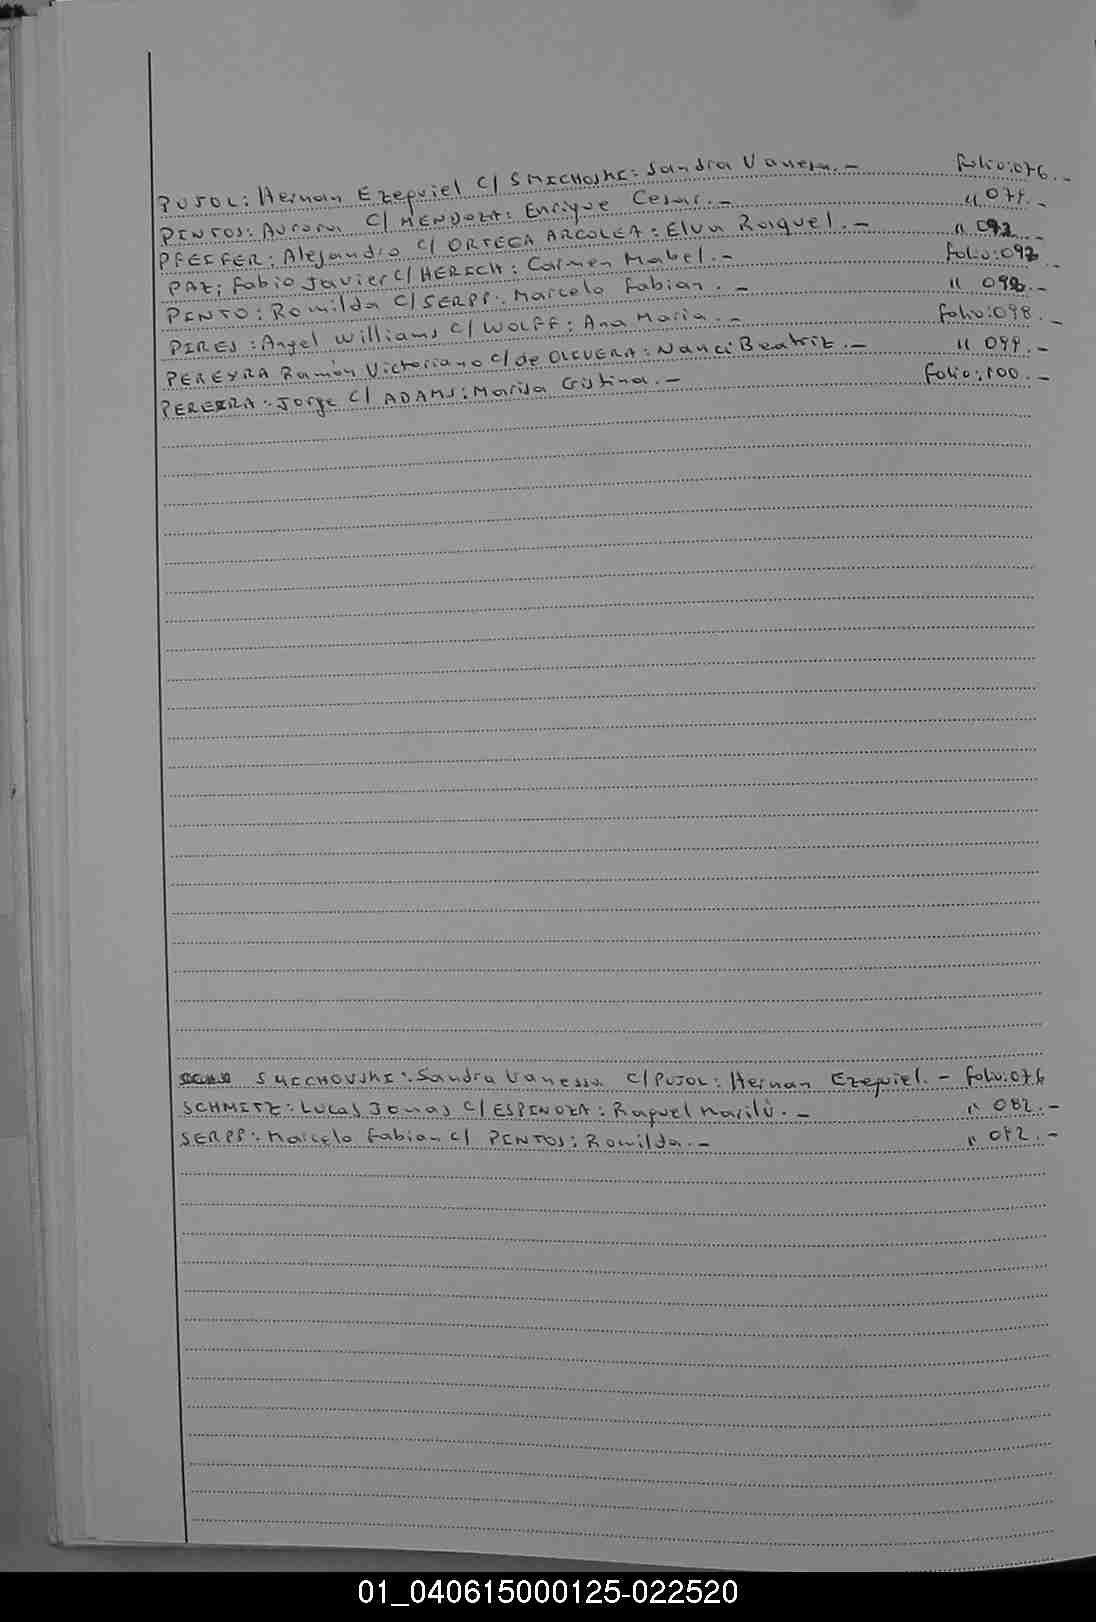 PUJOL: Hernan Ezequiel C/ SMICHOSKI: Sandra Vanesa.- folio:076.-
PINTOS: Aurora C/ MENDOZA: Enrique Cesar.- " 077.-
PFEIFER: Alejandro C/ ORTEGA ARGOLEA: Elva Raquel.- "
PAZ; Fabio Javier C/ HERICH: Carmen Mabel.- folio:
PINTO: Romilda C/ SERPP: Marcelo Fabian.- "
PIRES: Angel Williams C/ WOLFF: Ana Maria.- folio:098.-
PEREYRA Ramón Victoriano C/ de OLIVERA: Nanci Beatriz.- " 099.-
PEREIRA: Jorge C/ ADAMS: Marisa Cristina.- folio:100.-
SMICHOVSKI: Sandra Vanessa C/ PUJOL: Hernan Ezequiel.- folio:076
SCHMITZ: Lucas Jonas C/ ESPINOZA: Raquel Marilú.- " 082.-
SERPP: Marcelo Fabian C/ PINTOS: Romilda.- "
01_040615000125-022520